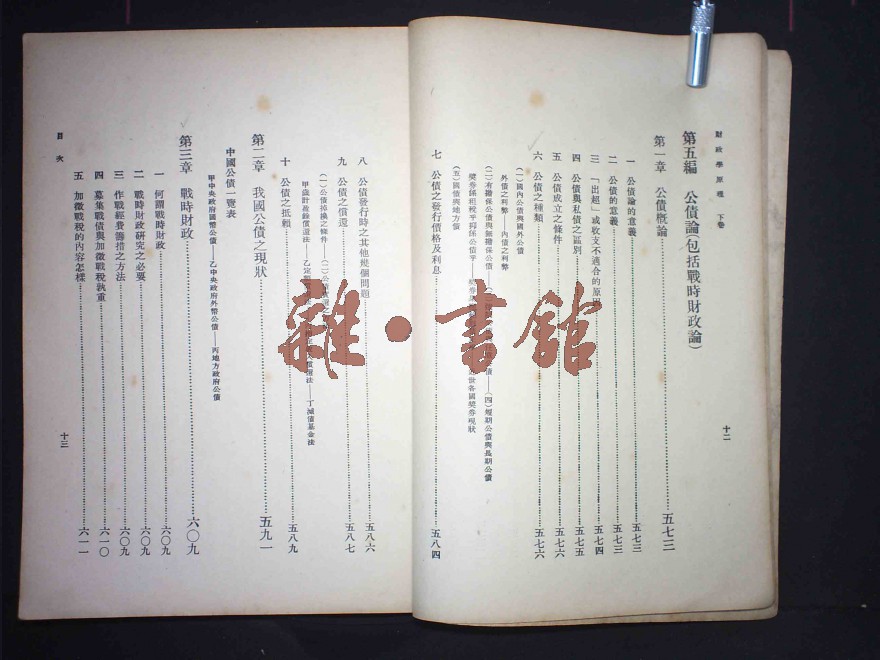 財政學原理 下卷
十二
第五編 公債論(包括戰時財政論)
第一章 公債概論……五七三
一 公債論的意義……五七三
二 公債的意義……五七三
三 「出超」或收支不適合的原因……五七四
四 公債與私債之區別……五七五
五 公債成立之條件……五七六
六 公債之種類……五七六
(一)國內公債與國外公債
外債之利弊——內債之利弊
(二)有擔保公債與無擔保公債——(四)短期公債與長期公債
獎券係租稅乎抑係公債乎——世各國獎券現狀
(五)國債與地方債
七 公債之發行價格及利息……五八四
八 公債發行時之其他幾個問題……五八六
九 公債之償還……五八七
(一)公債掉換之條件
甲歲計盈餘償還法——乙定——丁減債基金法
十 公債之抵賴……五八九
第二章 我國公債之現狀……五九一
中國公債一覽表
甲中央政府國幣公債——乙中央政府外幣公債——丙地方政府公債
第三章 戰時財政……六〇九
一 何謂戰時財政……六〇九
二 戰時財政研究之必要……六〇九
三 作戰經費籌措之方法……六〇九
四 募集戰債與加徵戰稅孰重……六一〇
五 加徵戰稅的內容怎樣……六一一
目次
十三
雜·書館